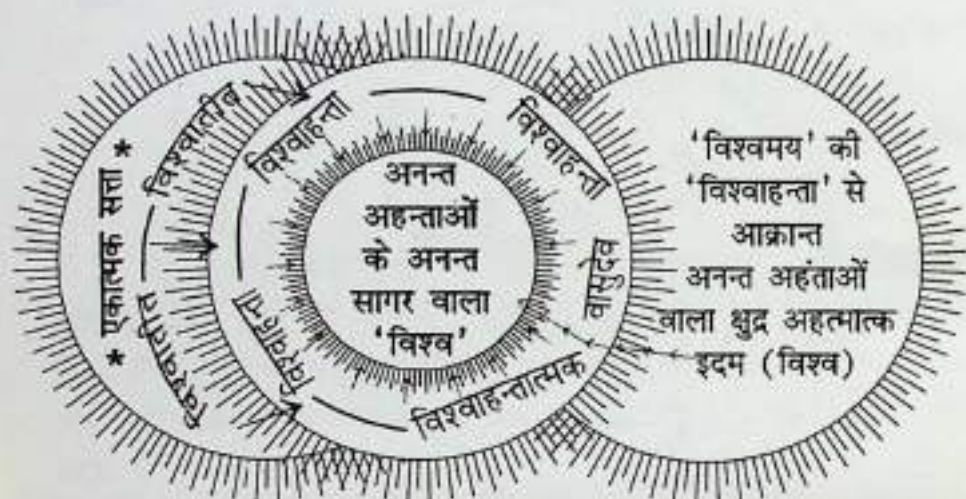 * एकात्मक सत्ता *
विश्वातीत
विश्वातीत
विश्वाहन्ता
विश्वाहन्ता
विश्वाहन्ता
वासुदेव
विश्वाहन्तात्मक
अनन्त
अहन्ताओं
के अनन्त
सागर वाला
‘विश्व’
‘विश्वमय’ की
‘विश्वाहन्ता’ से
आक्रान्त
अनन्त अहंताओं
वाला क्षुद्र अहत्मात्क
इदम (विश्व)